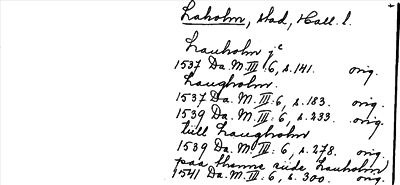 Laholm, stad, Hall. l.
Lauholm jc
1537 Da. M. III: 6, s. 141. orig.
Laugholm.
1537 Da. M. III: 6, s. 183. orig.
1539 Da. M. III: 6, s. 233. orig.
tiill Laugholm
1539 Da. M. III: 6, s. 278. orig.
paa thenne side Lauholm
1541 Da. M. III: 6, s. 300. orig.